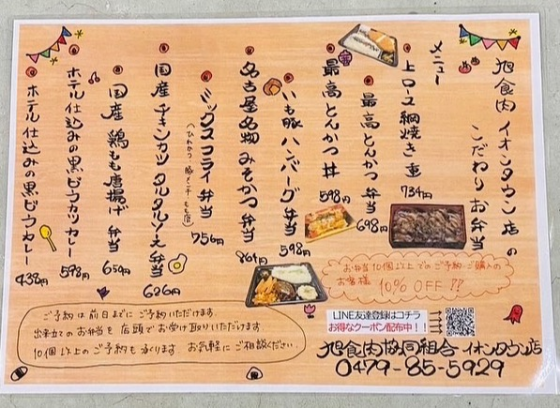 旭食肉 イオンタウン店の
こだわりお弁当
メニュー
上ロース網焼き重 734円
最高とんかつ弁当 698円
最高とんかつ丼 598円
いも豚ハンバーグ弁当 598円
名古屋名物 みそかつ弁当 864円
ミックスフライ弁当 756円
国産チキンカツ タルタルソース弁当 626円
国産鶏もも唐揚げ弁当 659円
ホテル仕込みの黒ビーフカツカレー 598円
ホテル仕込みの黒ビーフカレー 438円
お弁当10個以上でのご予約・ご購入の
お客様 10% OFF!!
ご予約は前日までにご予約いただけます
出来立てのお弁当を店頭でお受け取りいただけます
10個以上のご予約も承ります。お気軽にご相談ください。
LINE友達登録はコチラ
お得なクーポン配布中!!
旭食肉協同組合 イオンタウン店
0479-85-5929